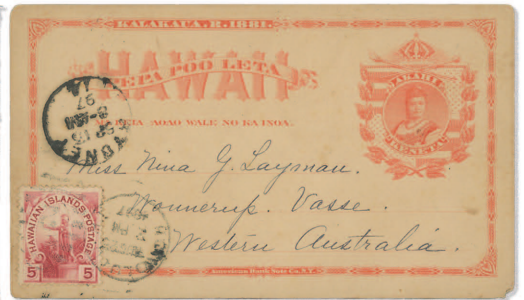 KALAKAUA. R. 1881.
HAWAII
PEPA POO LETA
MA KEIA AOAO WALE NO KA INOA.
SYDNEY
97
Miss Nina G. Layman.
Wonnerup. Vasse.
Western Australia.
HAWAIIAN ISLANDS POSTAGE
5 5
American Bank Note Co. N.Y.